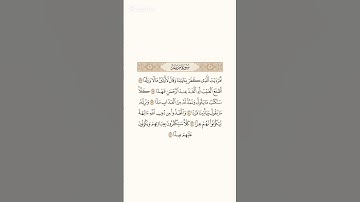 سورة مريم
أَفَرَءَيْتَ ٱلَّذِى كَفَرَ بِـَٔايَٰتِنَا وَقَالَ لَأُوتَيَنَّ مَالًا وَوَلَدًا
أَطَّلَعَ ٱلْغَيْبَ أَمِ ٱتَّخَذَ عِندَ ٱلرَّحْمَٰنِ عَهْدًا كَلَّا
سَنَكْتُبُ مَا يَقُولُ وَنَمُدُّ لَهُۥ مِنَ ٱلْعَذَابِ مَدًّا وَنَرِثُهُۥ
مَا يَقُولُ وَيَأْتِينَا فَرْدًا وَٱتَّخَذُوا۟ مِن دُونِ ٱللَّهِ ءَالِهَةً
لِّيَكُونُوا۟ لَهُمْ عِزًّا كَلَّا سَيَكْفُرُونَ بِعِبَادَتِهِمْ وَيَكُونُونَ
عَلَيْهِمْ ضِدًّا